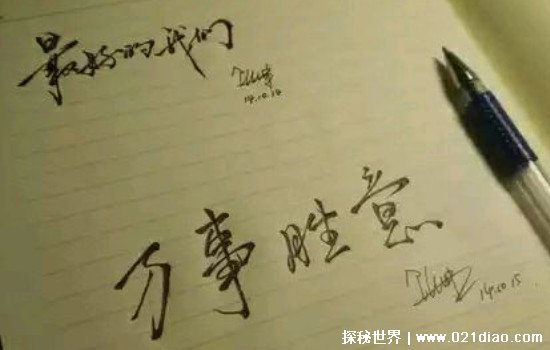 最好的我们
14.10.14
万事胜意
14.10.15
探秘世界 | www.021diao.com